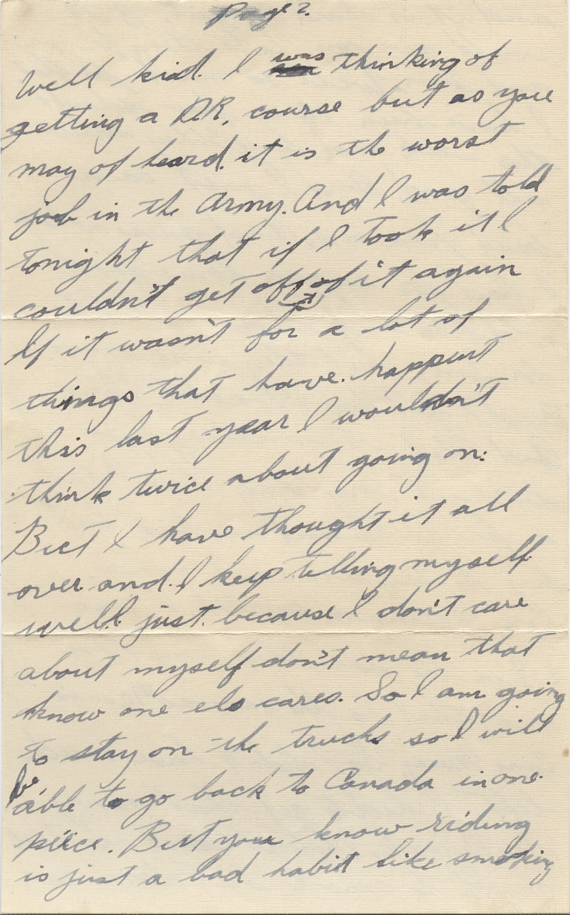 Page 2.
Well kid. I was thinking of
getting a DR, course but as you
may of heard. it is the worst
job in the Army. And I was told
tonight that if I took it I
couldn't get off of it again
If it wasn't for a lot of
things that have. happent
this last year I wouldn't
think twice about going on:
But I have thought it all
over and. I keep telling myself
well just. because I don't care
about myself don't mean that
know one els cares. So I am going
to stay on the trucks so I will
be able to go back to Canada in one
piece. But you know riding
is just a bad habit like smoking